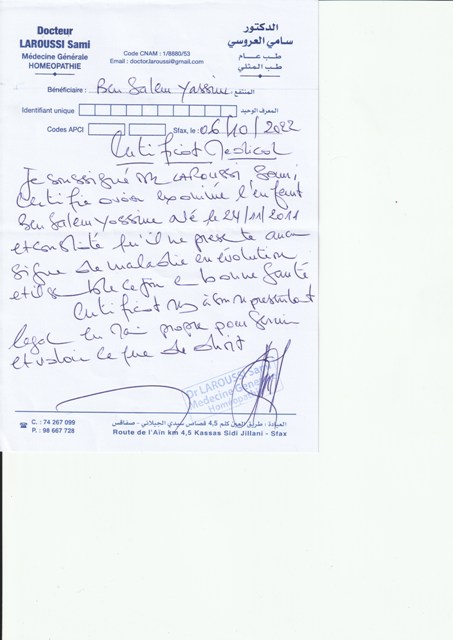 Docteur
LAROUSSI Sami
Médecine Générale
HOMEOPATHIE
Code CNAM : 1/8880/53
Email : doctor.laroussi@gmail.com
الدكتور
سامي العروسي
طب عام
طب المثلي
Bénéficiaire : Ben Salem Yassine المنتفع :
Identifiant unique المعرف الوحيد
Codes APCI Sfax, le : 06/10/2022
Certificat Medical
Je soussigné Dr LAROUSSI Sami,
Certifie avoir examiné l'enfant
Ben Salem Yassine né le 24/11/2011
et constaté qu'il ne presente aucun
signe de maladie en évolution
et il semble ce jour en bonne santé
Certificat remis à son representant
legal en main propre pour servir
et valoir ce que de droit
Dr LAROUSSI Sami
Médecine Générale
Homéopathie
C. : 74 267 099
P. : 98 667 728
العيادة : طريق العين كلم 4,5 قصاص سيدي الجيلاني - صفاقس
Route de l'Aïn km 4,5 Kassas Sidi Jillani - Sfax